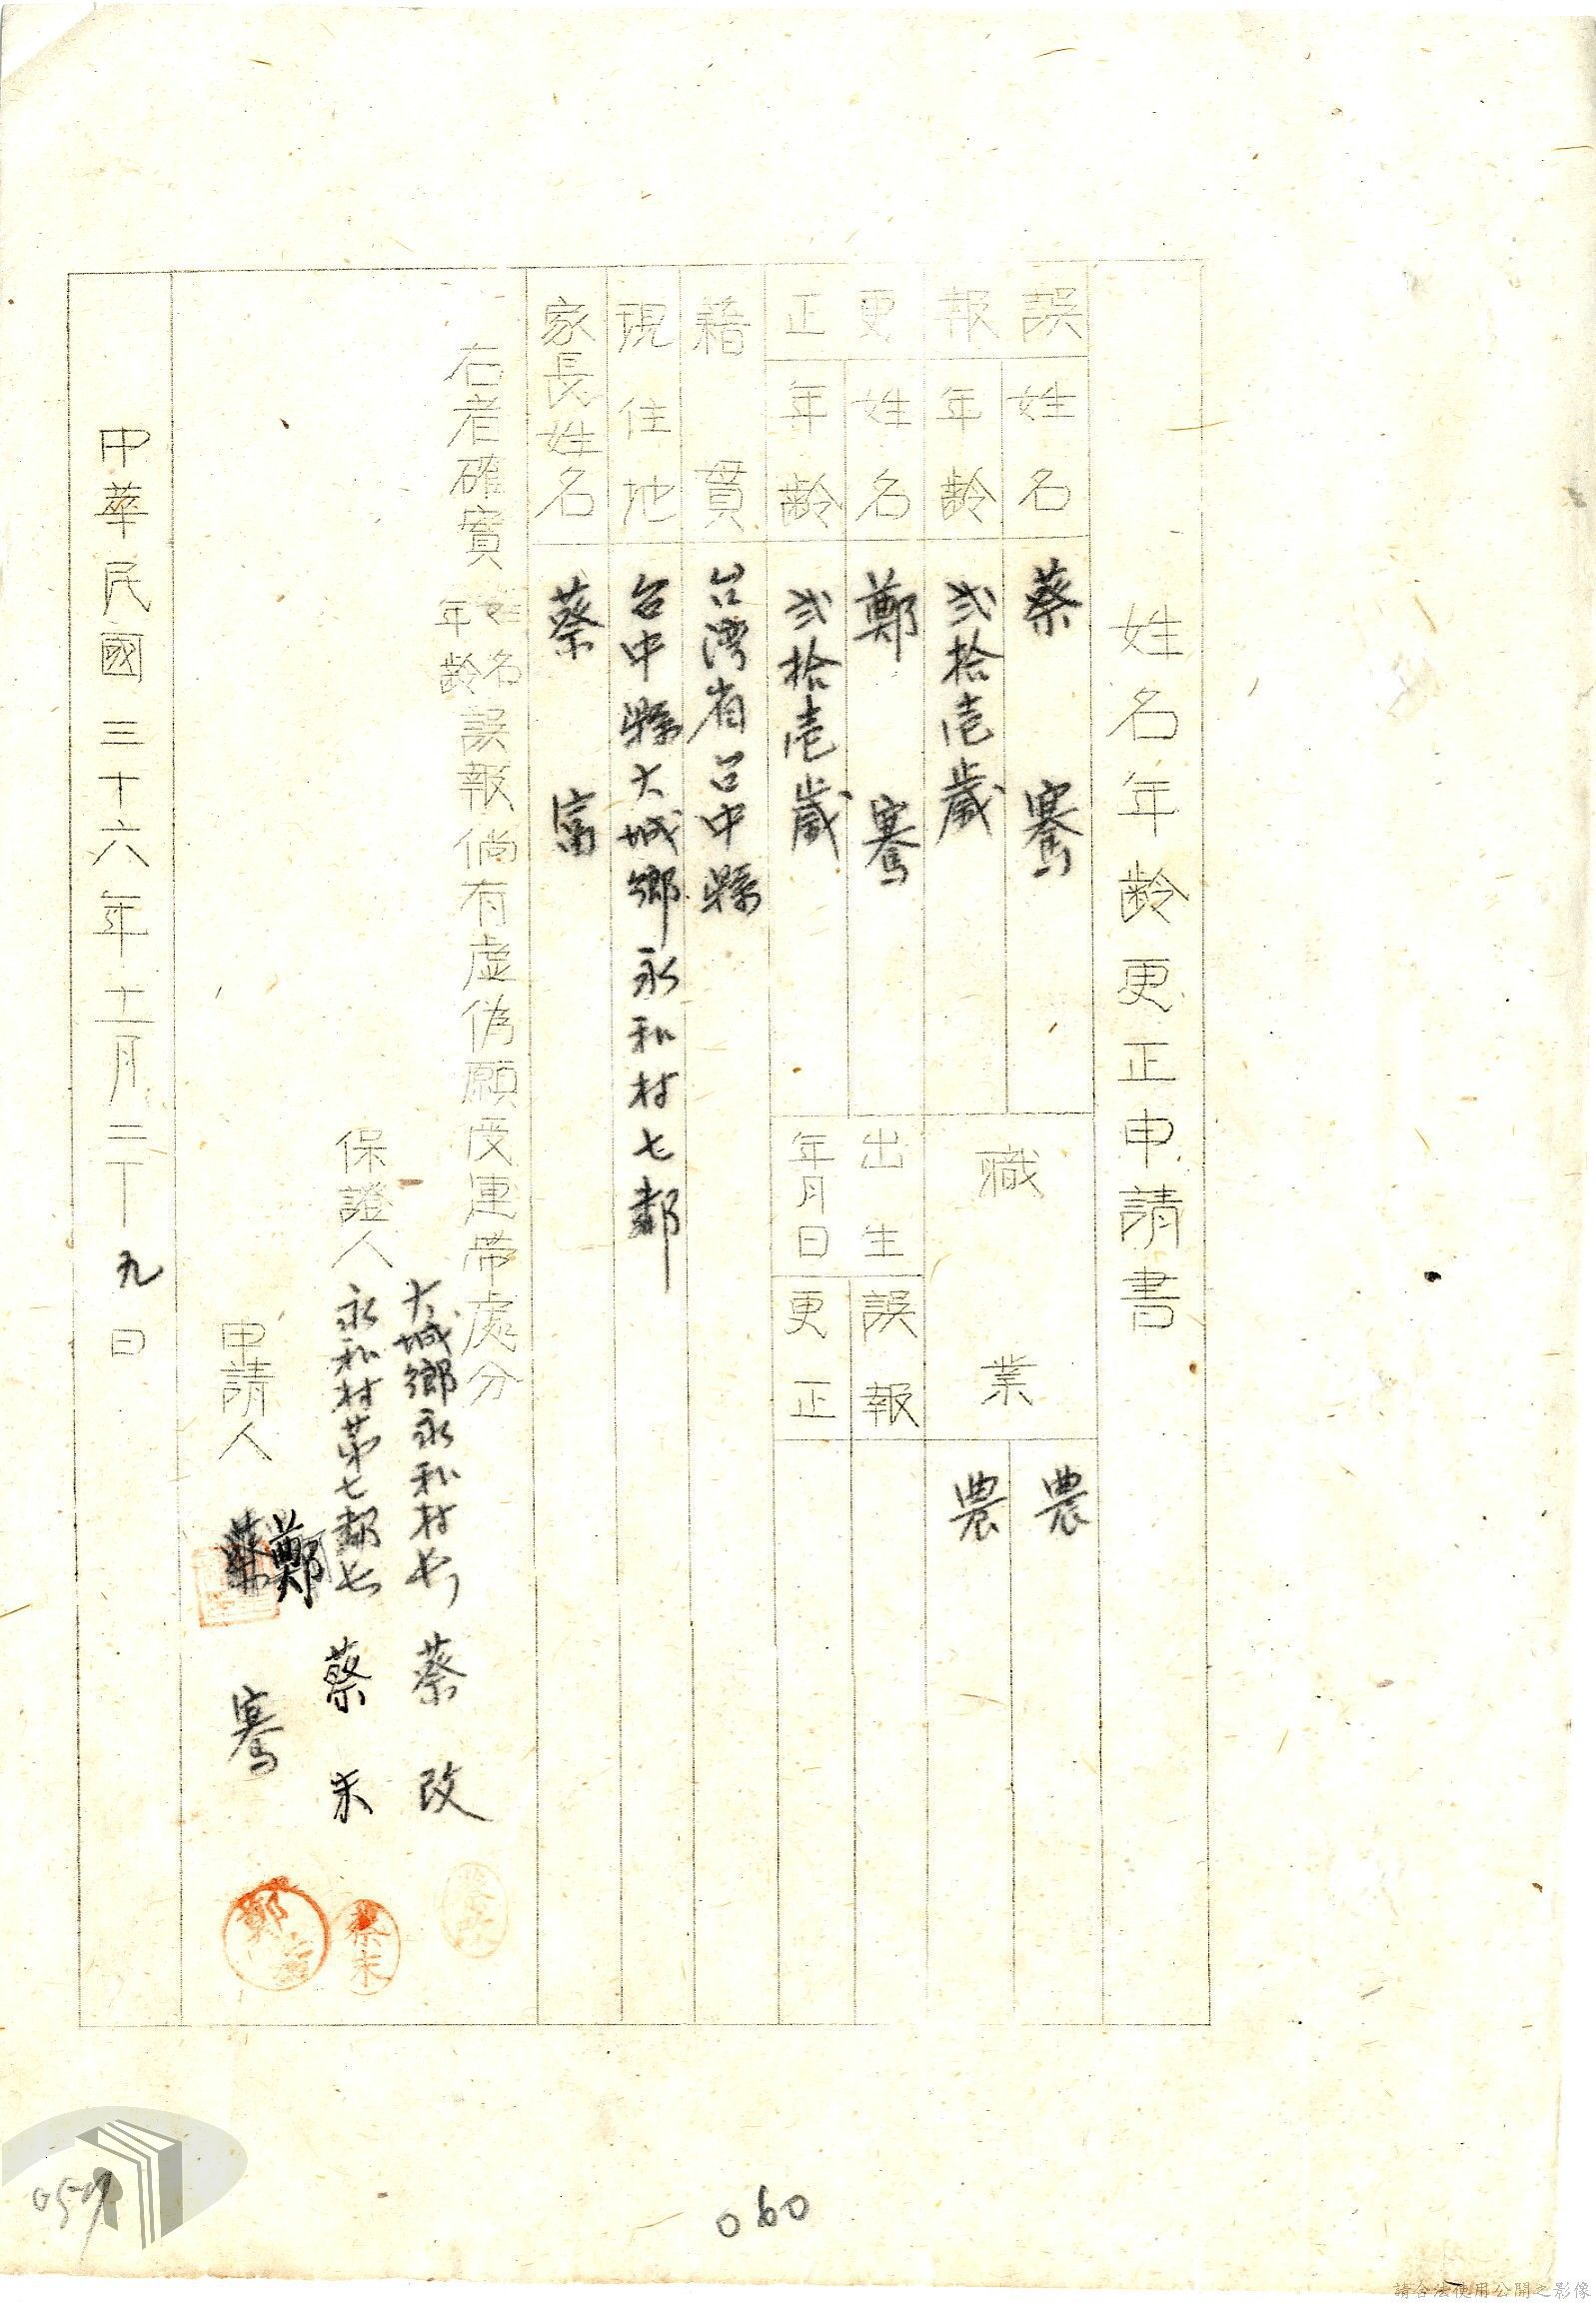 姓名年齡更正申請書
誤報
姓名
蔡騫
年齡
弍拾壱歲
職業
農
農
更正
姓名
鄭騫
年齡
弍拾壱歲
出生年月日
誤報
更正
籍貫
台灣省台中縣
現住地
台中縣大城鄉永和村七鄰
家長姓名
蔡富
右者確實姓名年齡誤報倘有虛偽願受連帶處分
大城鄉永和村長 蔡改
保證人
永和村第七鄰長 蔡未
申請人 鄭騫
中華民國三十六年十一月二十九日
鄭
蔡未
059
060
請合法使用公開之影像